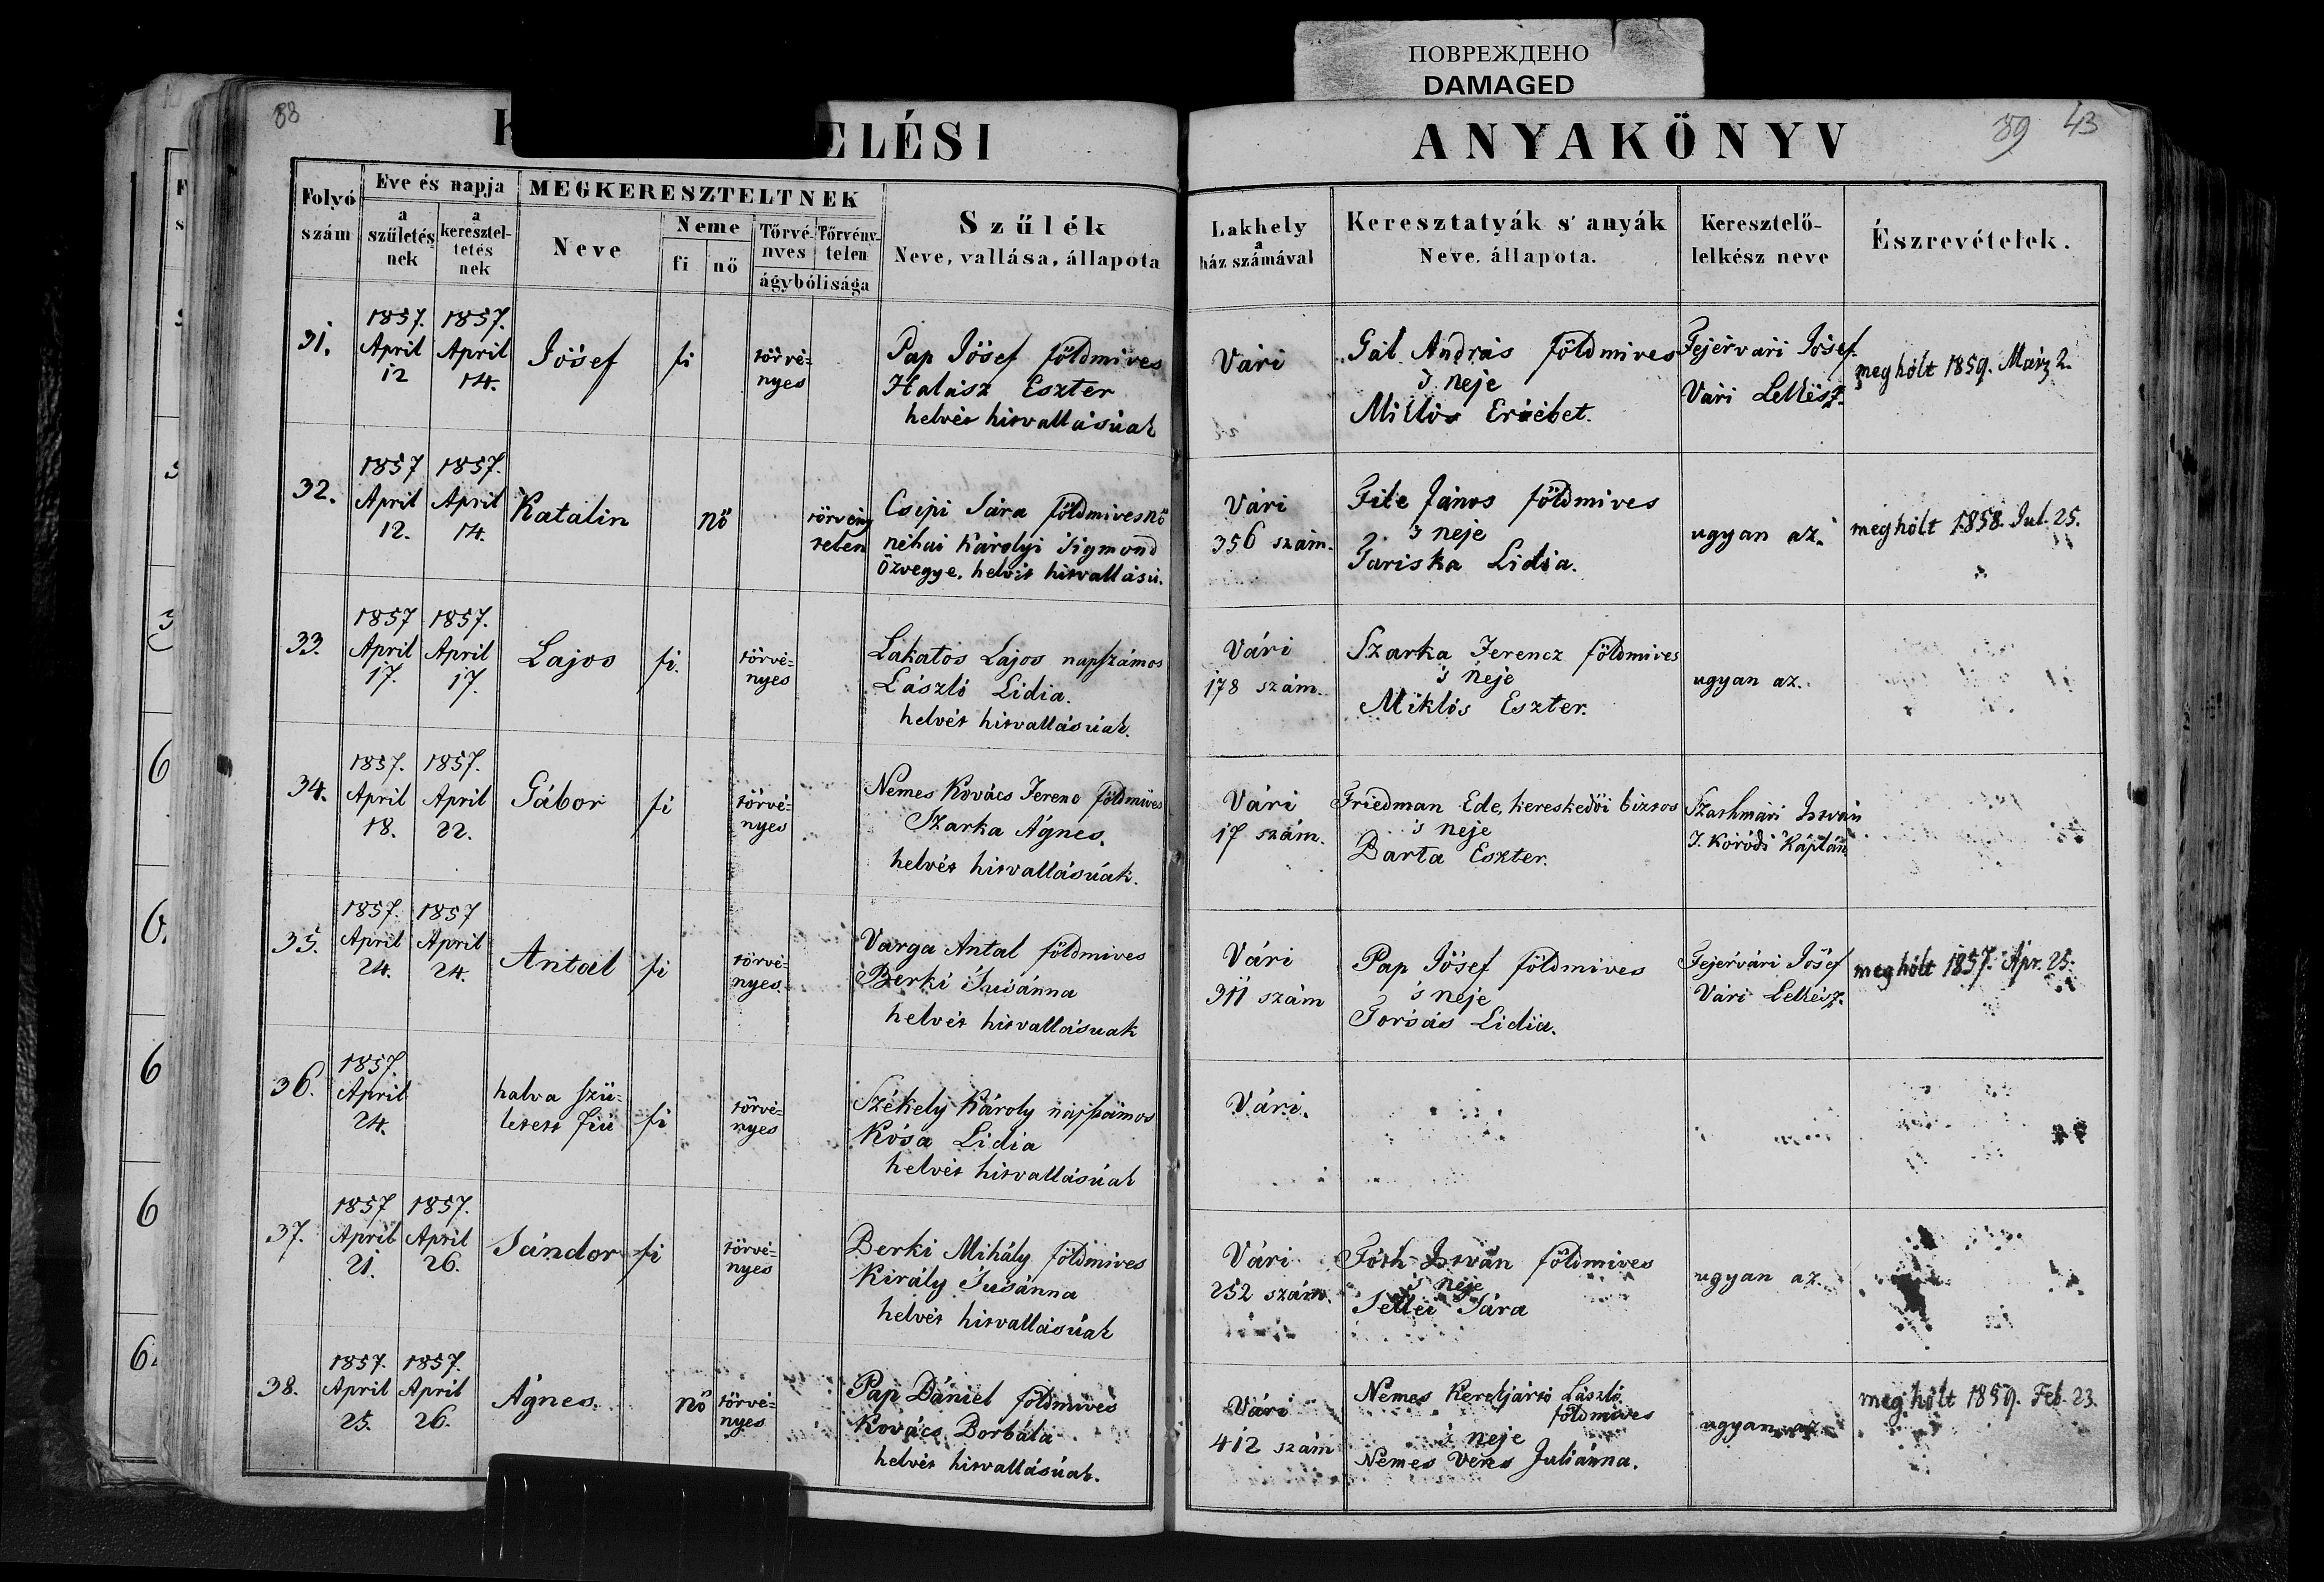 ПОВРЕЖДЕНО
DAMAGED
88
ELÉSI
ANYAKÖNYV
89 43
Folyó szám
Eve és napja
a születés nek
a keresztel- tetés nek
MEGKERESZTELTNEK
Neve
Neme
fi nő
Törvé- nyes
Törvény- telen
ágybólisága
Szűlék
Neve, vallása, állapota
Lakhely
a
ház számával
Keresztatyák s' anyák
Neve, állapota.
Keresztelő-
lelkész neve
Észrevételek.
31.
1857. April 12
1857. April 14.
Jósef
fi
törvé=
nyes
Pap Jósef földmives
Halász Eszter
helvét hitvallásúak
Vári
Gál András földmives
's neje
Miklós Ersébet.
Fejérvári Jósef
Vári Lelkész.
meghólt 1859. Márz 2.
32.
1857 April 12.
1857. April 14.
Katalin
nő
törvény
telen
Csipi Sára földmivesnő
néhai Károlyi Sigmond
özvegye, helvét hitvallású.
Vári
356 szám.
File János földmives
's neje
Lidia.
ugyan az.
meghólt 1858. Jul. 25.
33.
1857 April 17.
1857. April 17.
Lajos
fi.
törvé=
nyes
Lakatos Lajos napszámos
László Lidia.
helvét hitvallásúak.
Vári
178 szám.
Szarka Ferencz földmives
's neje
Miklós Eszter.
ugyan az.
34.
1857. April 18.
1857. April 22.
Gábor
fi
törvé=
nyes
Nemes Kovács Ferenc földmives
Szarka Ágnes.
helvét hitvallásúak.
Vári
17 szám.
Friedman Ede, kereskedői biztos
's neje
Barta Eszter.
Szathmári István
T. Kóródi Káplán
35.
1857. April 24.
1857 April 24.
Antal
fi
törvé=
nyes.
Varga Antal földmives
Berki Susánna
helvét hitvallásuak
Vári
311 szám
Pap Jósef földmives
's neje
Lidia.
Fejérvári Jósef
Vári Lelkész.
meghólt 1857. Apr. 25.
36.
1857. April 24.
halva szü=
letett fiú
fi
törvé=
nyes
Székely Károly napszámos
Kósa Lidia
helvét hitvallásúak
Vári.
37.
1857 April 21.
1857. April 26.
Sándor
fi
törvé=
nyes
Berki Mihály földmives
Király Susánna
helvét hitvallásúak
Vári
252 szám.
Tóth István földmives
's neje
Sára
ugyan az.
38.
1857. April 25.
1857. April 26.
Ágnes.
nő
törvé=
nyes
Pap Dániel földmives
Kovács Borbála
helvét hitvallásúak.
Vári
412 szám
Nemes László
földmives
's neje
Nemes Veres Juliánna.
ugyan az
meghólt 1859. Feb. 23.